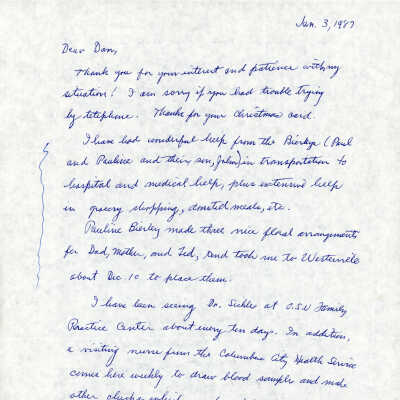 Jan. 3, 1987
Dear Dan,
Thank you for your interest and patience with my
situation! I am sorry if you had trouble trying
by telephone. Thanks for your Christmas card.
I have had wonderful help from the Bierleys (Paul
and Pauline and their son, John) in transportation to
hospital and medical help, plus extensive help
in grocery shopping, donated meals, etc.
Pauline Bierley made three nice floral arrangements
for Dad, Mother, and Ted, and took me to Westerville
about Dec 10 to place them.
I have been seeing Dr. at O.S.U Family
Practice Center about every ten days. In addition,
a visiting nurse from the Columbus City Health Service
comes here weekly to draw blood sample and make
other checks